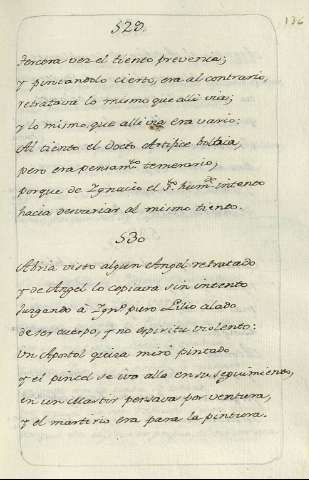 529.
136
Tercera vez el tiento prevenia;
y pintandolo cierto, era al contrario,
retratava lo mismo que alli via;
y lo mismo, que alli via era vario:
Al tiento el docto Artifice bolvia,
pero era pensam.to temerario;
porque de Ygnacio el S.r hum.de intento
hacia desvariar al mismo tiento.
530
Abria visto algun Angel retratado
y de Angel lo copiava sin intento
juzgando à Ygn.o puro Lilio alado
de ser cuerpo, y no espiritu violento:
Un Apostol quiza miró pintado
y el pincel se iva alla en su seguimiento,
en un Martir pensava por ventura,
y el martirio era para la pintura.